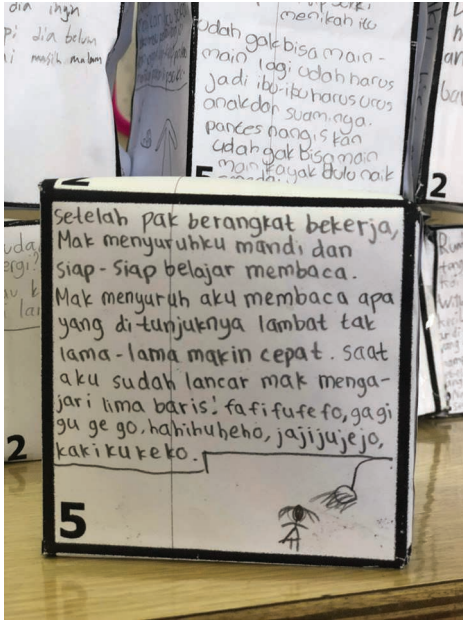 dia ingin
pi dia belum
i masih malam
menikah itu
udah gak bisa main-
main lagi udah harus
jadi ibu-ibu harus urus
anak dan suaminya.
pantes nangis kan
udah gak bisa main
main kayak dulu naik
5
2
2
setelah pak berangkat bekerja,
Mak menyuruhku mandi dan
siap-siap belajar membaca.
Mak menyuruh aku membaca apa
yang ditunjuknya lambat tak
lama-lama makin cepat. saat
aku sudah lancar mak menga-
jari lima baris: fa fi fu fe fo, ga gi
gu ge go, ha hi hu he ho, ja ji ju je jo,
ka ki ku ke ko.
5
2